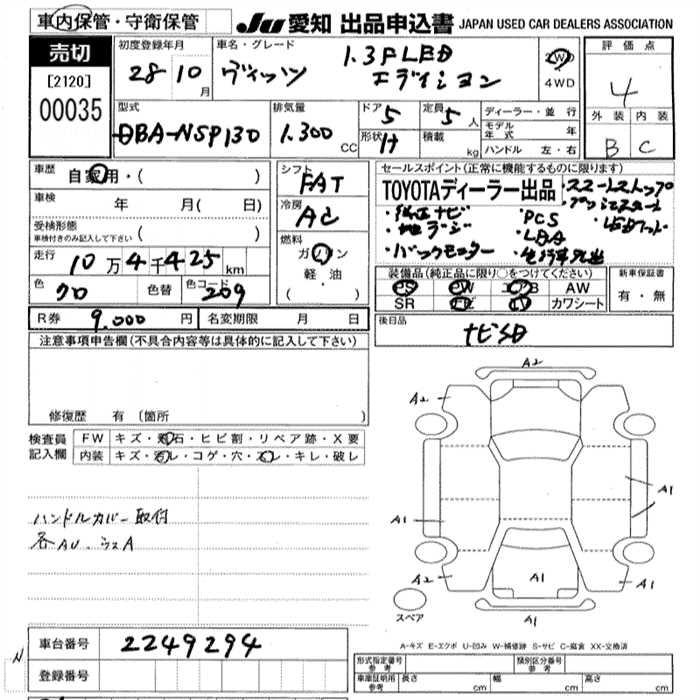 車内保管・守衛保管
JU 愛知 出品申込書 JAPAN USED CAR DEALERS ASSOCIATION
売切
[2120]
00035
初度登録年月
28 10月
車名・グレード
ヴィッツ
1.3F LED
エディション
2WD
4WD
評価点
4
外装 内装
B C
型式
DBA-NSP130
排気量
1.300 CC
ドア 5
形状 H
定員 5 人
積載 kg
ディーラー・並行
モデル年式 年
ハンドル 左・右
車歴 自家用・( )
車検 年 月( 日)
受検形態
車検付きのみ記入して下さい ( )
走行 10万4千425km
色 クロ 色替 色コード 209
シフト
FAT
冷房
AC
燃料
ガソリン
軽・油
( )
セールスポイント(正常に機能するものに限ります)
TOYOTAディーラー出品
・スマートストップ
・プッシュスタート
・純正ナビ ・PCS ・LEDヘッド
・地デジ ・LDA
・バックモニター
装備品(純正品に限り○をつけてください)
PS PW エアB AW
SR ナビ TV カワシート
新車保証書
有・無
R券 9.000 円 名変期限 月 日
後日品
ナビSD
注意事項申告欄(不具合内容等は具体的に記入して下さい)
修復歴 有 (箇所 )
検査員記入欄
FW キズ・飛石・ヒビ割・リペア跡・X要
内装 キズ・汚レ・コゲ・穴・スレ・キレ・破レ
ハンドルカバー取付
各AU.
A2
A2
A2
A1
A1
A1
A1
A2
A1
A1
スペア
A-キズ E-エクボ U-凹み W-補修跡 S-サビ C-腐食 XX-交換済
車台番号 2249294
N
登録番号
形式指定番号 参考 類別区分番号 参考
車庫証明用 参考 長さ cm 幅 cm 高さ cm